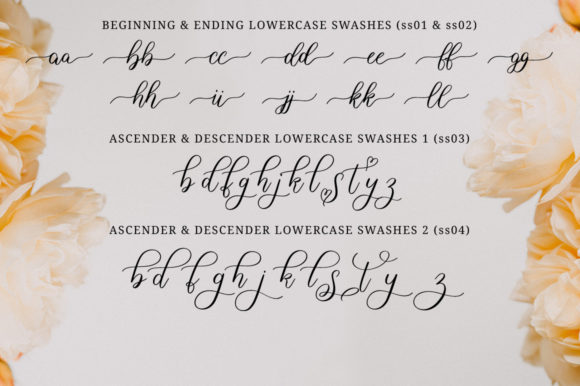 BEGINNING & ENDING LOWERCASE SWASHES (ss01 & ss02)
aa bb cc dd ee ff gg
hh ii jj kk ll
ASCENDER & DESCENDER LOWERCASE SWASHES 1 (ss03)
b d f g h j k l s t y z
ASCENDER & DESCENDER LOWERCASE SWASHES 2 (ss04)
b d f g h j k l s t y z